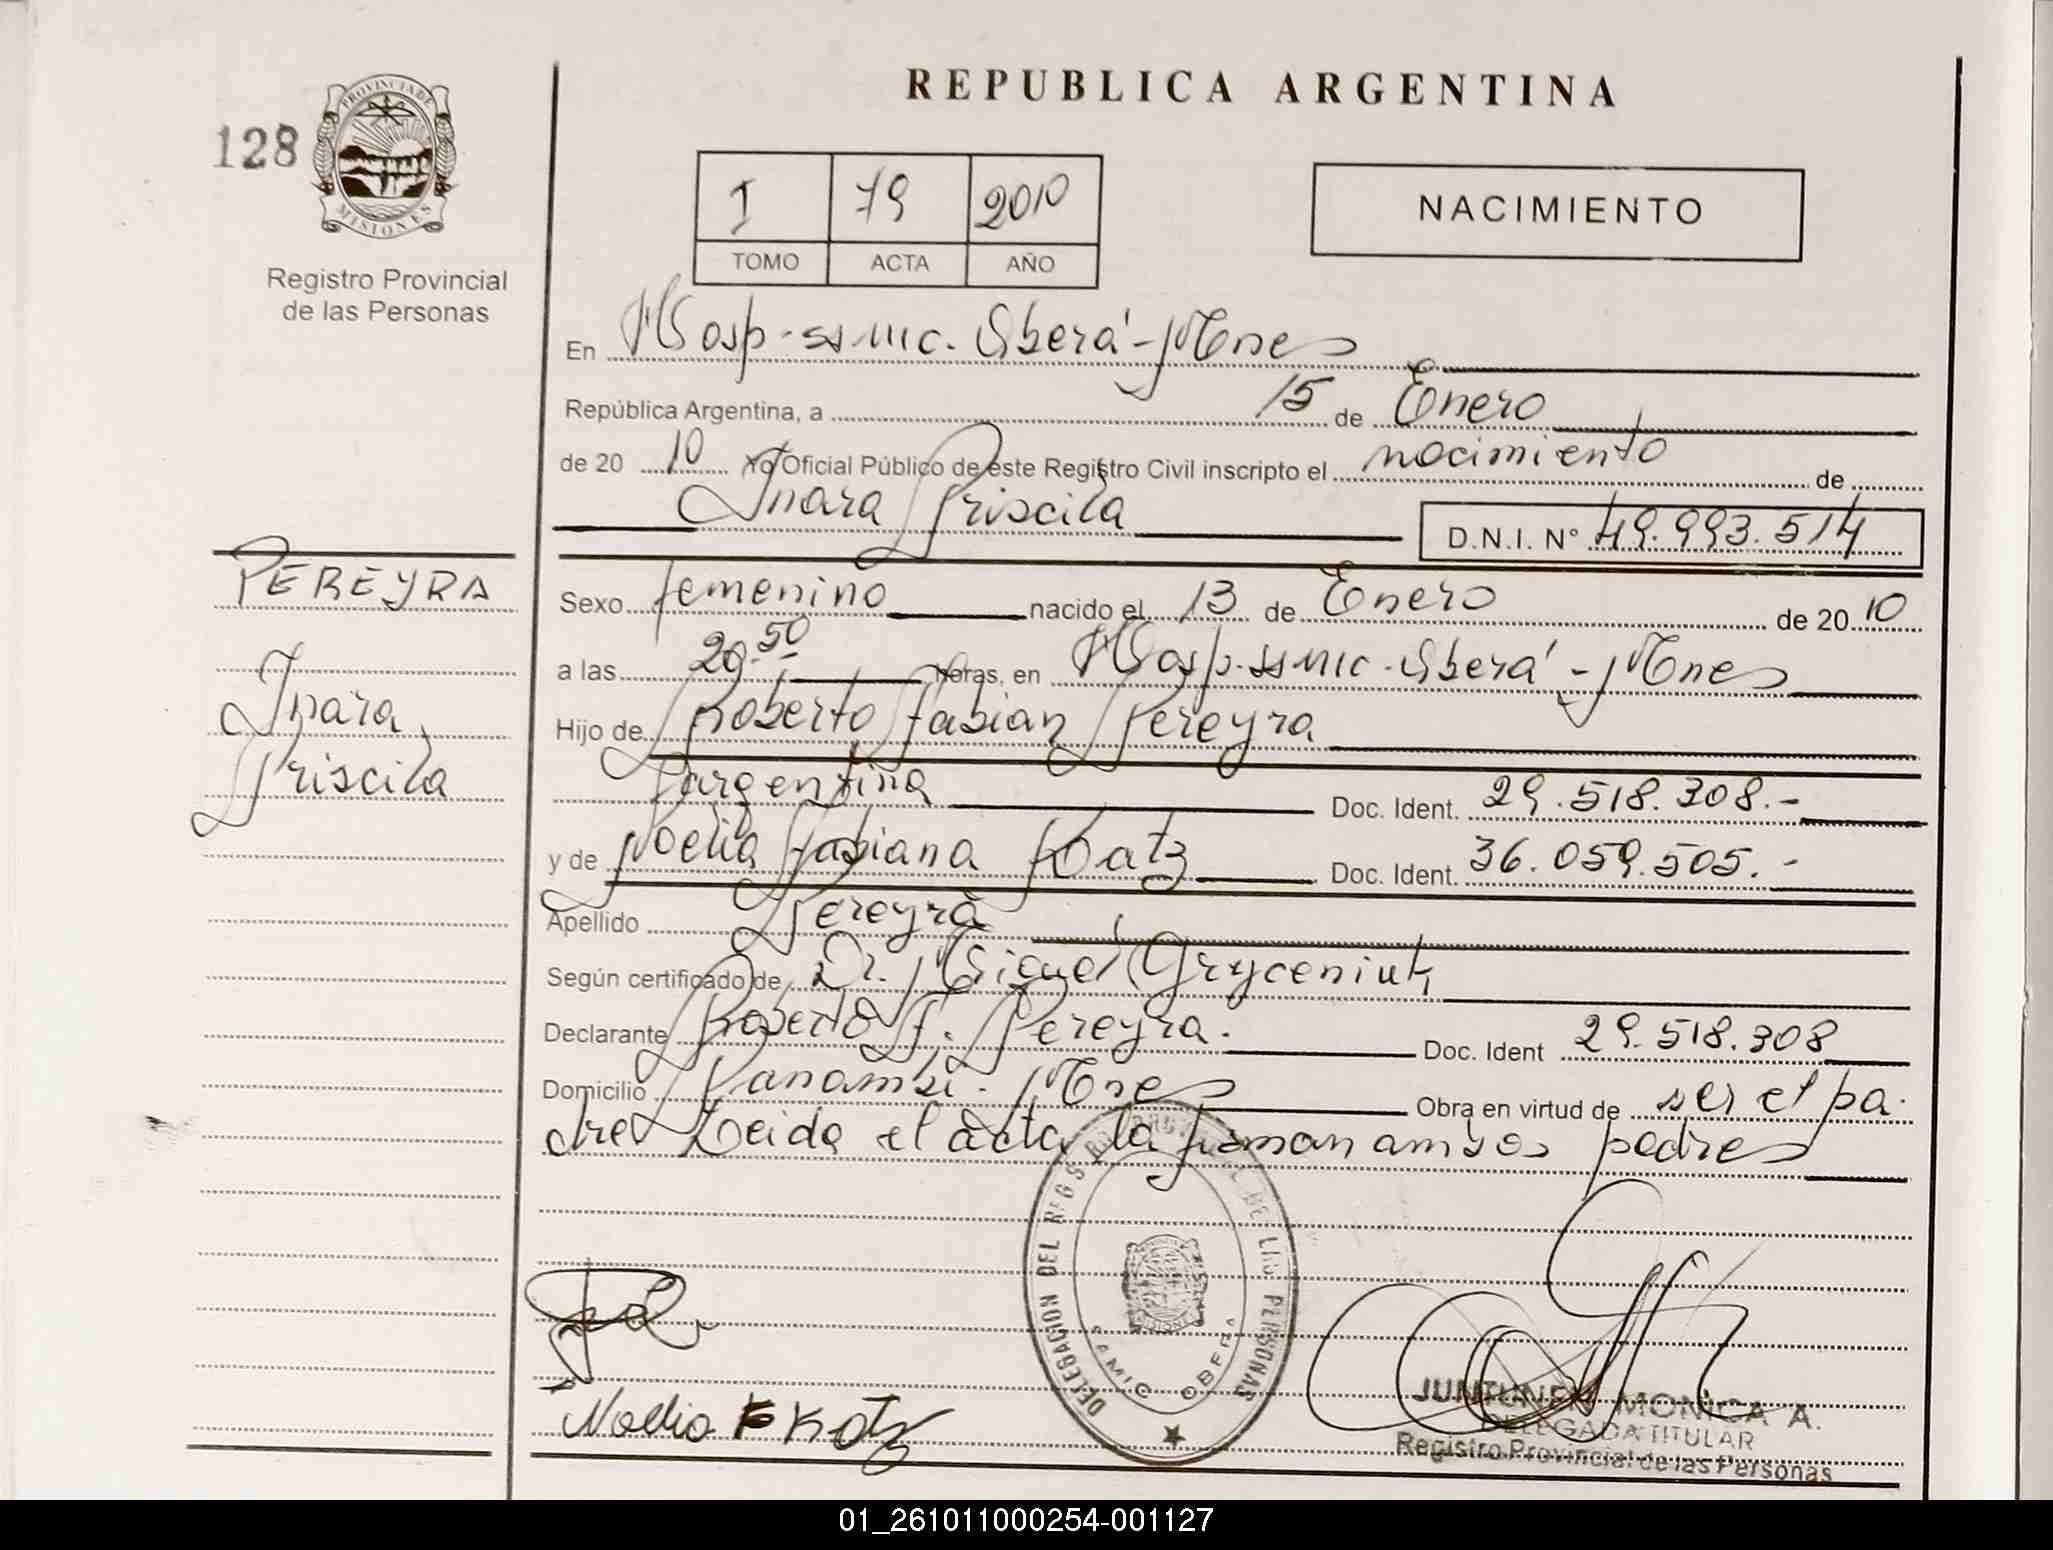 REPUBLICA ARGENTINA
128
PROVINCIA DE
MISIONES
Registro Provincial
de las Personas
I 79 2010
TOMO ACTA AÑO
NACIMIENTO
En Hosp. ssmic. Oberá - Mnes
República Argentina, a 15 de Enero
de 20 10 Yo Oficial Público de este Registro Civil inscripto el nacimiento de
Inara Priscila
D.N.I. Nº 49.993.514
PEREYRA
Inara
Priscila
Sexo femenino nacido el 13 de Enero de 20 10
a las 20.50 horas, en Hosp. ssmic. Oberá - Mnes
Hijo de Roberto Fabian Pereyra
argentina Doc. Ident. 29.518.308.-
y de Noelia Fabiana Katz Doc. Ident. 36.059.505.-
Apellido Pereyra
Según certificado de Dr. Miguel Gryceniuk
Declarante Roberto F. Pereyra. Doc. Ident 29.518.308
Domicilio Panambí - Mnes Obra en virtud de ser el pa.
dre Leida el acta la firman ambos padres
DELEGACION DEL DE LAS PERSONAS
OBERA
Katz
JUNTUNEN MONICA A.
DELEGADA TITULAR
Registro Provincial de las Personas
01_261011000254-001127